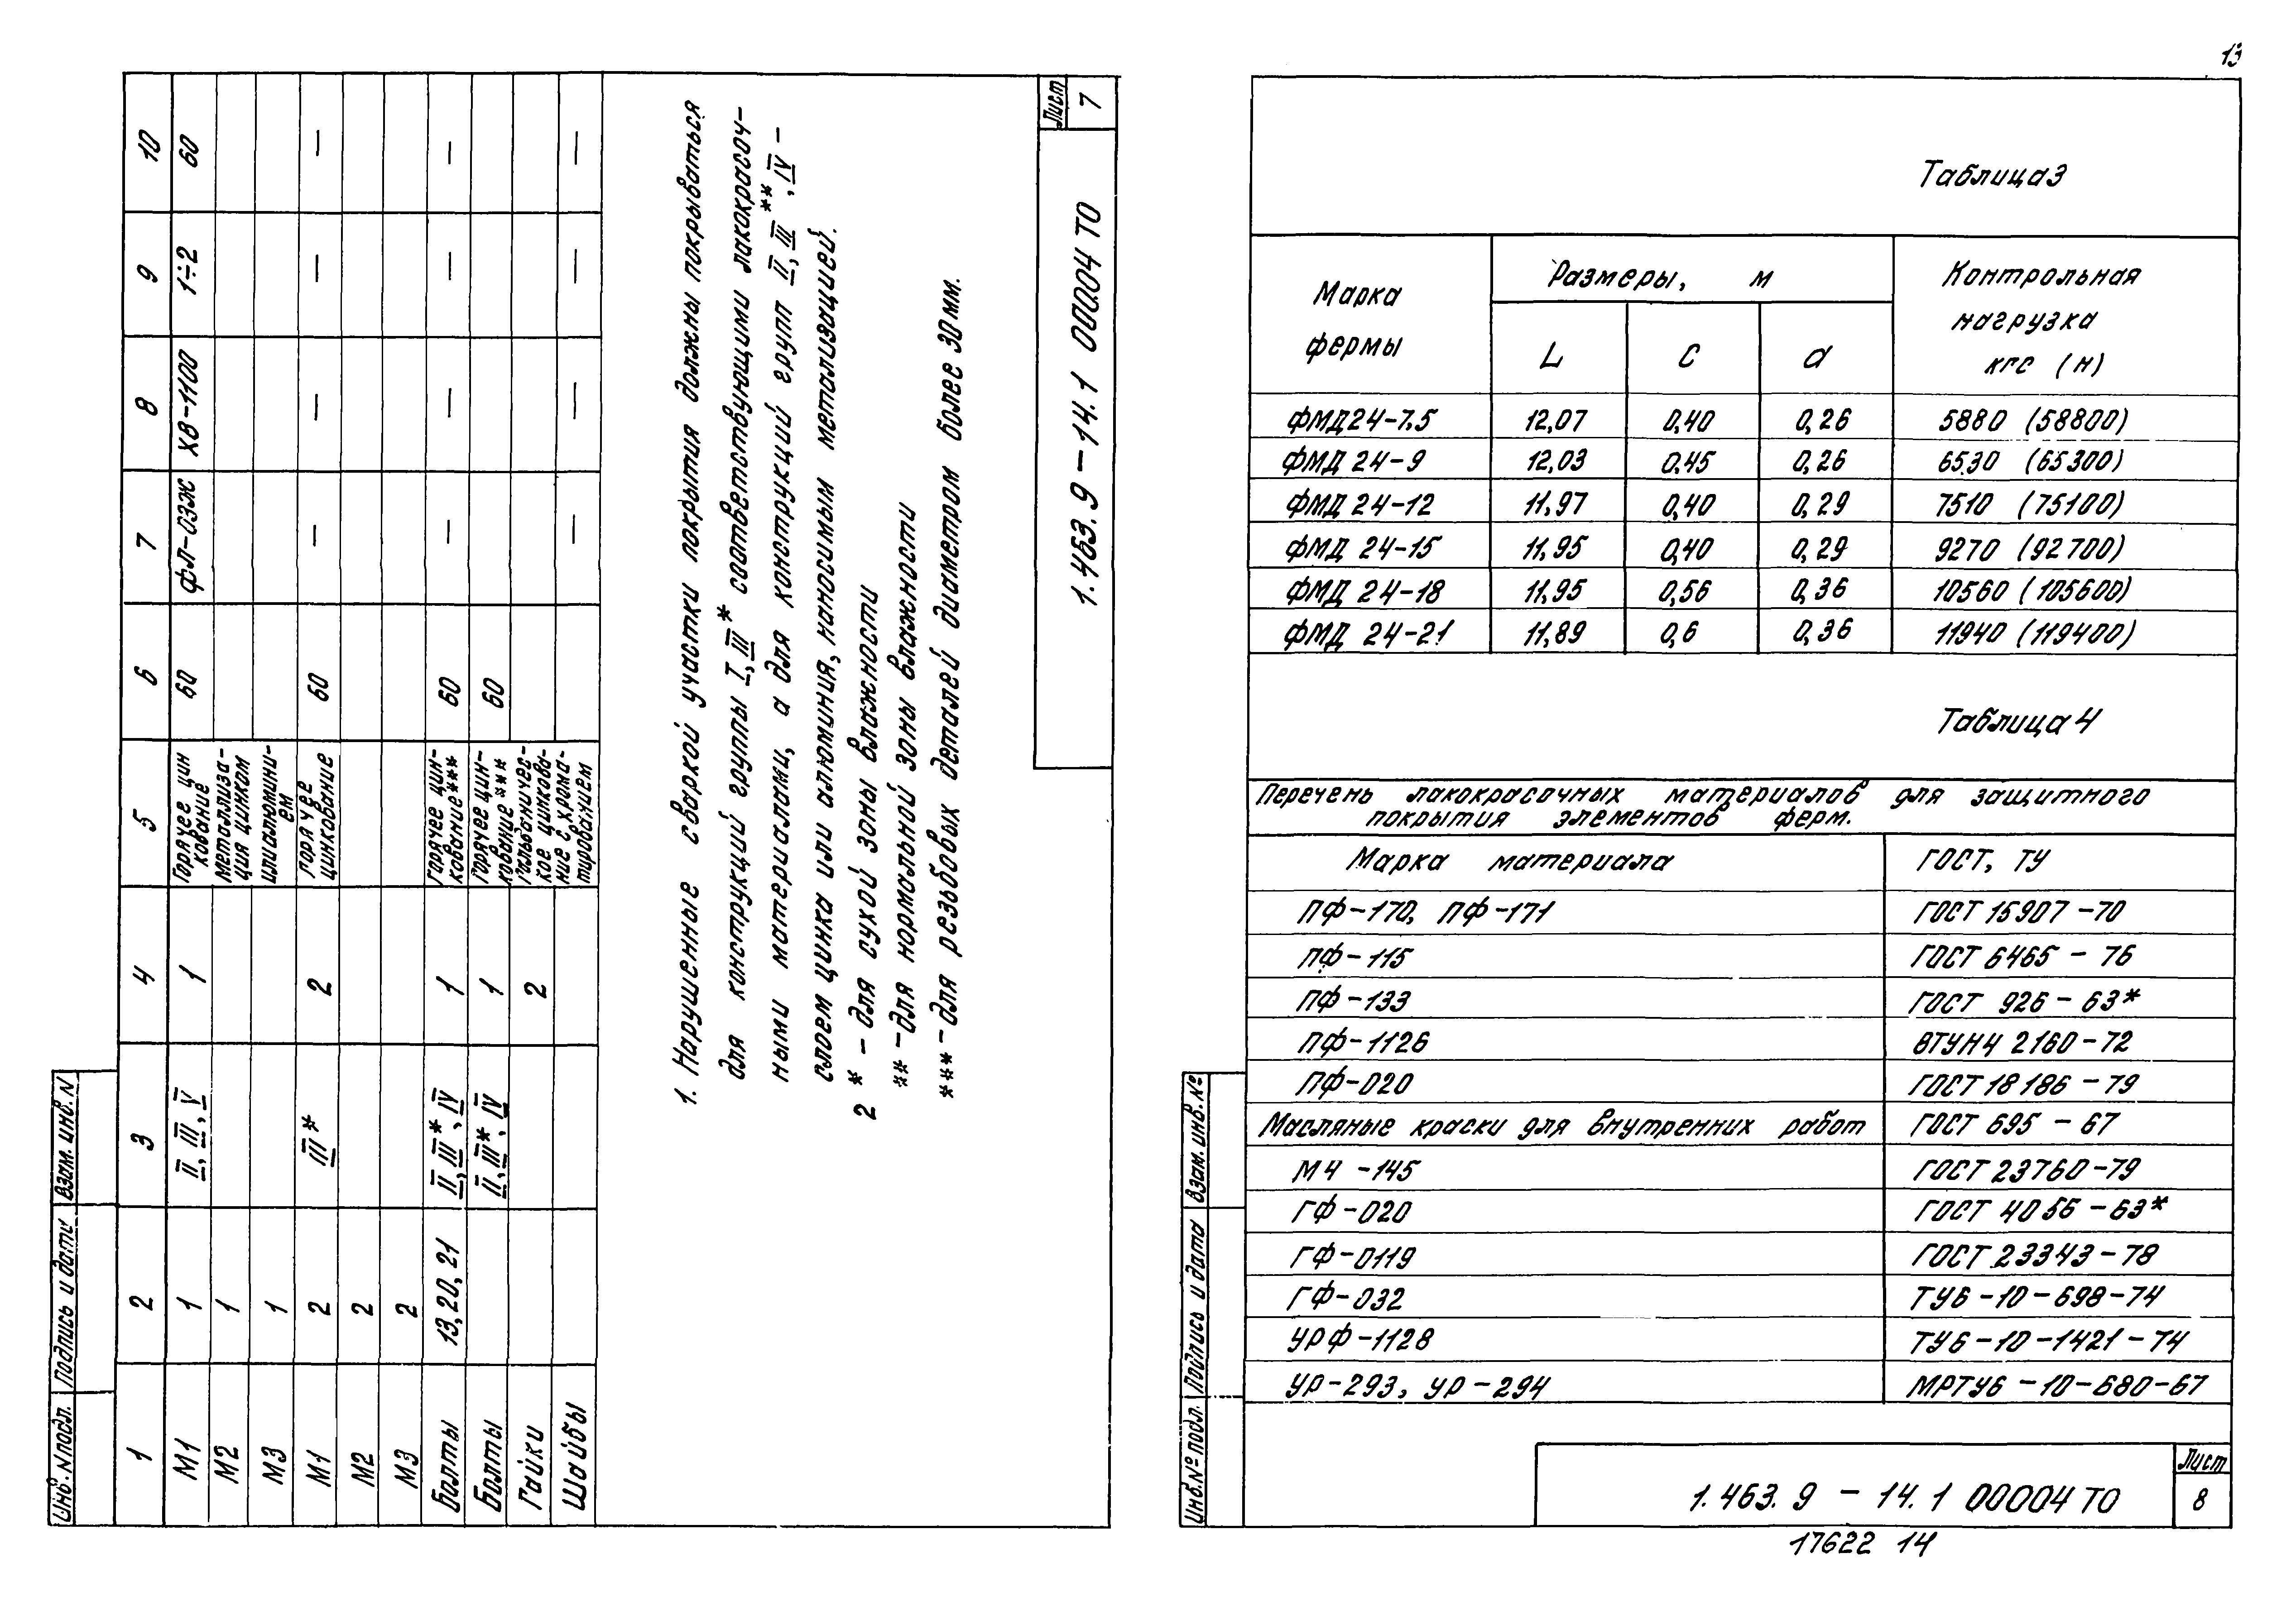 1 2 3 4 5 6 7 8 9 10
М1 1 II, III, V 1 Горячее цин
кование 60 ФЛ-03Ж ХВ-1100 1÷2 60
М2 1 Металлиза-
ция цинком
М3 1 или алюмини-
ем
М1 2 III* 2 Горячее
цинкование 60 — — — —
М2 2
М3 2
Болты 13, 20, 21 II, III*, IV 1 Горячее цин-
кование*** 60 — — — —
Болты II, III*, IV 1 Горячее цин-
кование *** 60
Гайки 2 Гальваничес-
кое цинкова-
Шайбы ние с хрома-
тированием — — — —
1. Нарушенные сваркой участки покрытия должны покрываться
для конструкций группы I, III* соответствующими лакокрасоч-
ными материалами, а для конструкций групп II, III**, IV -
слоем цинка или алюминия, наносимым метализацией.
2 * - для сухой зоны влажности
** - для нормальной зоны влажности
*** - для резьбовых деталей диаметром более 30 мм.
1.463.9-14.1 00004 ТО
Лист
7
Инв. N подл. Подпись и дата Взам. инв. N
13
Таблица 3
Марка
фермы
Размеры, м
L С d
Контрольная
нагрузка
кгс (н)
ФМД24-7.5 12,07 0,40 0,26 5880 (58800)
ФМД 24-9 12,03 0,45 0,26 6530 (65300)
ФМД 24-12 11,97 0,40 0,29 7510 (75100)
ФМД 24-15 11,95 0,40 0,29 9270 (92700)
ФМД 24-18 11,95 0,56 0,36 10560 (105600)
ФМД 24-21 11,89 0,6 0,36 11940 (119400)
Таблица 4
Перечень лакокрасочных материалов для защитного
покрытия элементов ферм.
Марка материала ГОСТ, ТУ
ПФ-170, ПФ-171 ГОСТ 15907-70
ПФ-115 ГОСТ 6465 - 76
ПФ-133 ГОСТ 926 - 63*
ПФ-1126 ВТУНЧ 2160-72
ПФ-020 ГОСТ 18186 - 79
Масляные краски для внутренних работ ГОСТ 695 - 67
МЧ -145 ГОСТ 23760-79
ГФ-020 ГОСТ 4056 -63*
ГФ-0119 ГОСТ 23343-78
ГФ-032 ТУ6-10-698-74
УРФ-1128 ТУ6-10-1421-74
УР-293, УР-294 МРТУ6-10-680-67
Инв. № подл. Подпись и дата Взам. инв. №
1.463.9 - 14.1 00004 ТО
Лист
8
17622 14